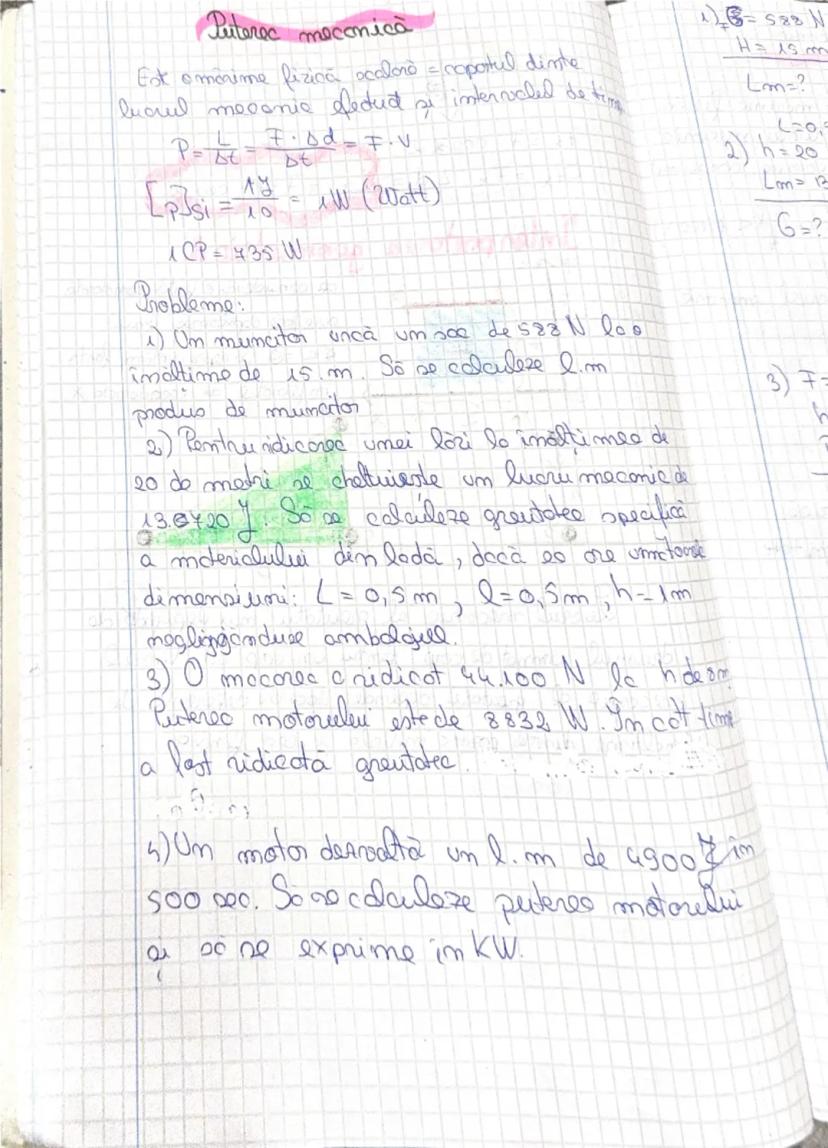 Puterea mecanică
Est o mărime fizică scalară = raportul dintre
lucrul mecanic efectuat și intervalul de timp
P = L/Δt = F · Δd/Δt = F · v
[P]si = 1J/1s = 1W (Watt)
1 CP = 735 W
Probleme:
1) Un muncitor urcă un sac de 588 N la o
înălțime de 15 m. Să se calculeze l.m
produs de muncitor
2) Pentru ridicarea unei lăzi la înălțimea de
20 de metri se cheltuiește un lucru mecanic de
J. Să se calculeze greutatea specifică
a materialului din ladă, dacă ea are următoarele
dimensiuni: L = 0,5 m, l = 0,5 m, h = 1m
neglijînduse ambalajul.
3) O macara a ridicat 44.100 N la h de 8m
Puterea motorului este de 8832 W. În cât timp
a fost ridicată greutatea.
4) Un motor dezvoltă un l.m de 4900 J în
500 sec. Să se calculeze puterea motorului
și să se exprime în KW.
1) G = 588 N
H = 15 m
Lm = ?
2) h = 20
Lm = 13
G = ?
3) F =
h